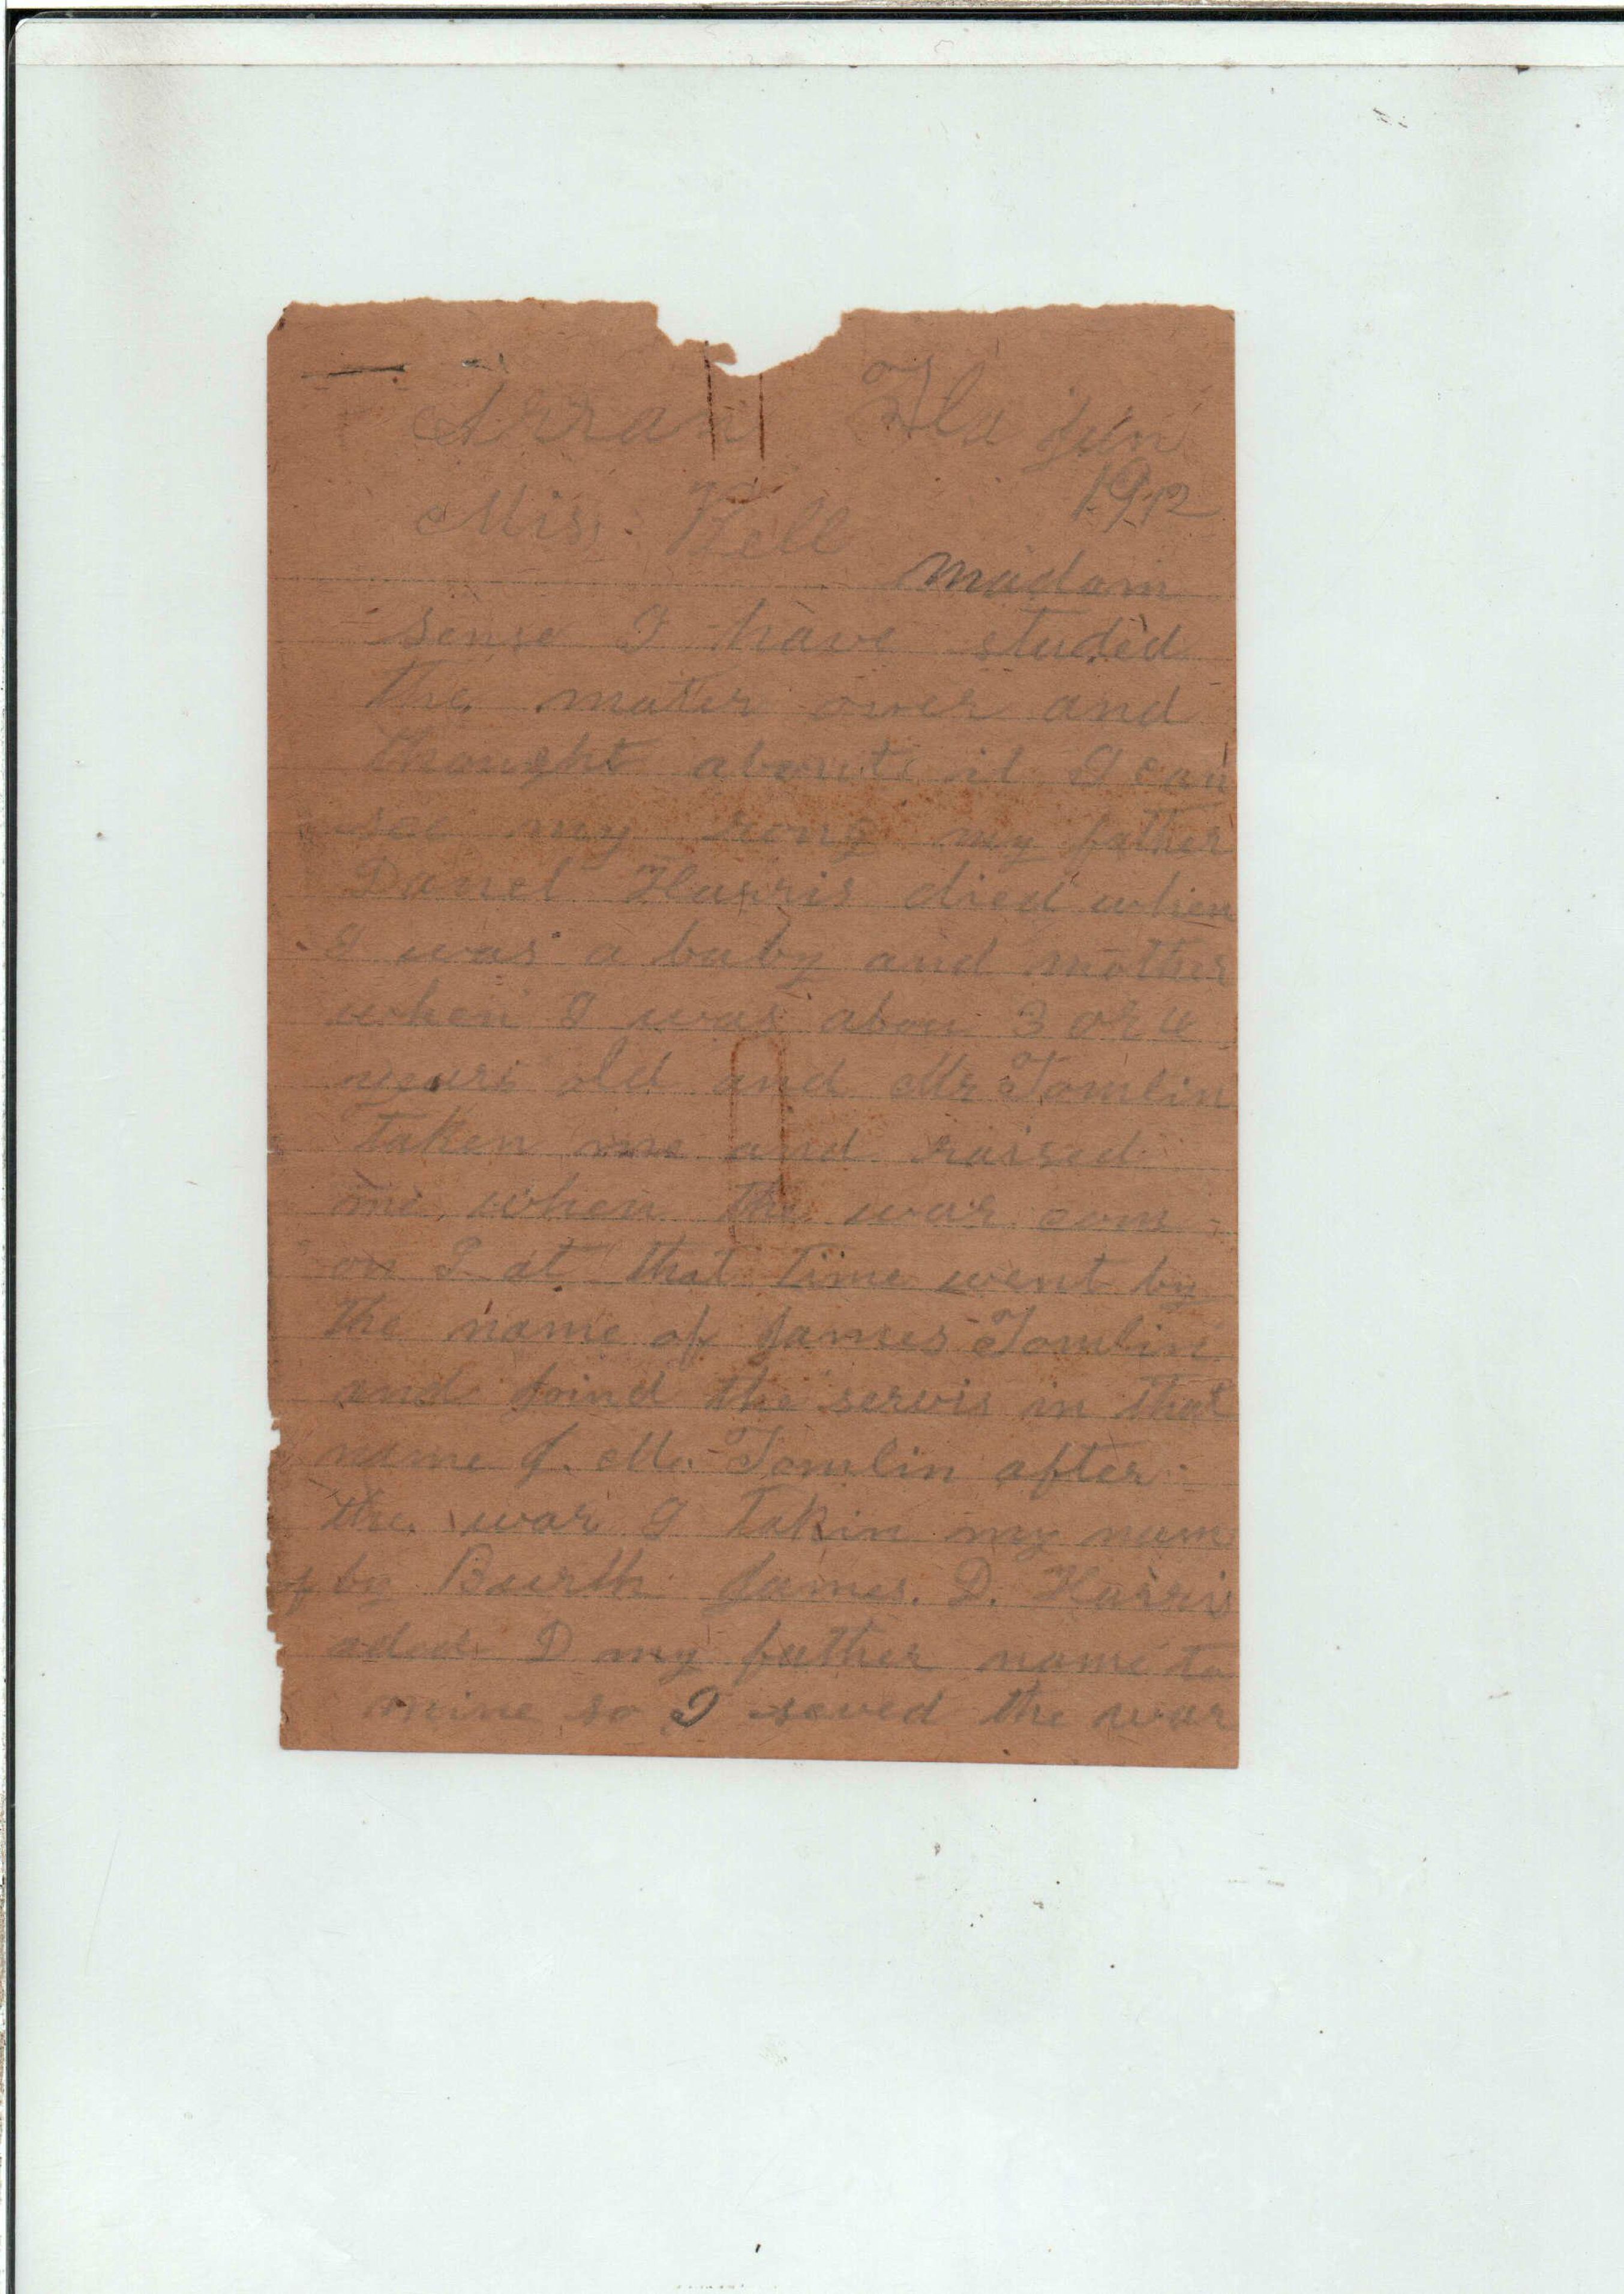 Arran Fla Jun
1912
Miss. Kell
madam
sense I have studed
the mater over and
thought about it I can
see my rong my father
Danel Harris died when
I was a baby and mother
when I was abou 3 or 4
years old and Mr Tomlin
taken me and raised
me. when the war com
on I at that time went by
the name of James Tomlin
and joind the servis in that
name J. M. Tomlin after
the war I takin my name
of by Burth James. D. Harris
aded D my father name to
mine so I served the war